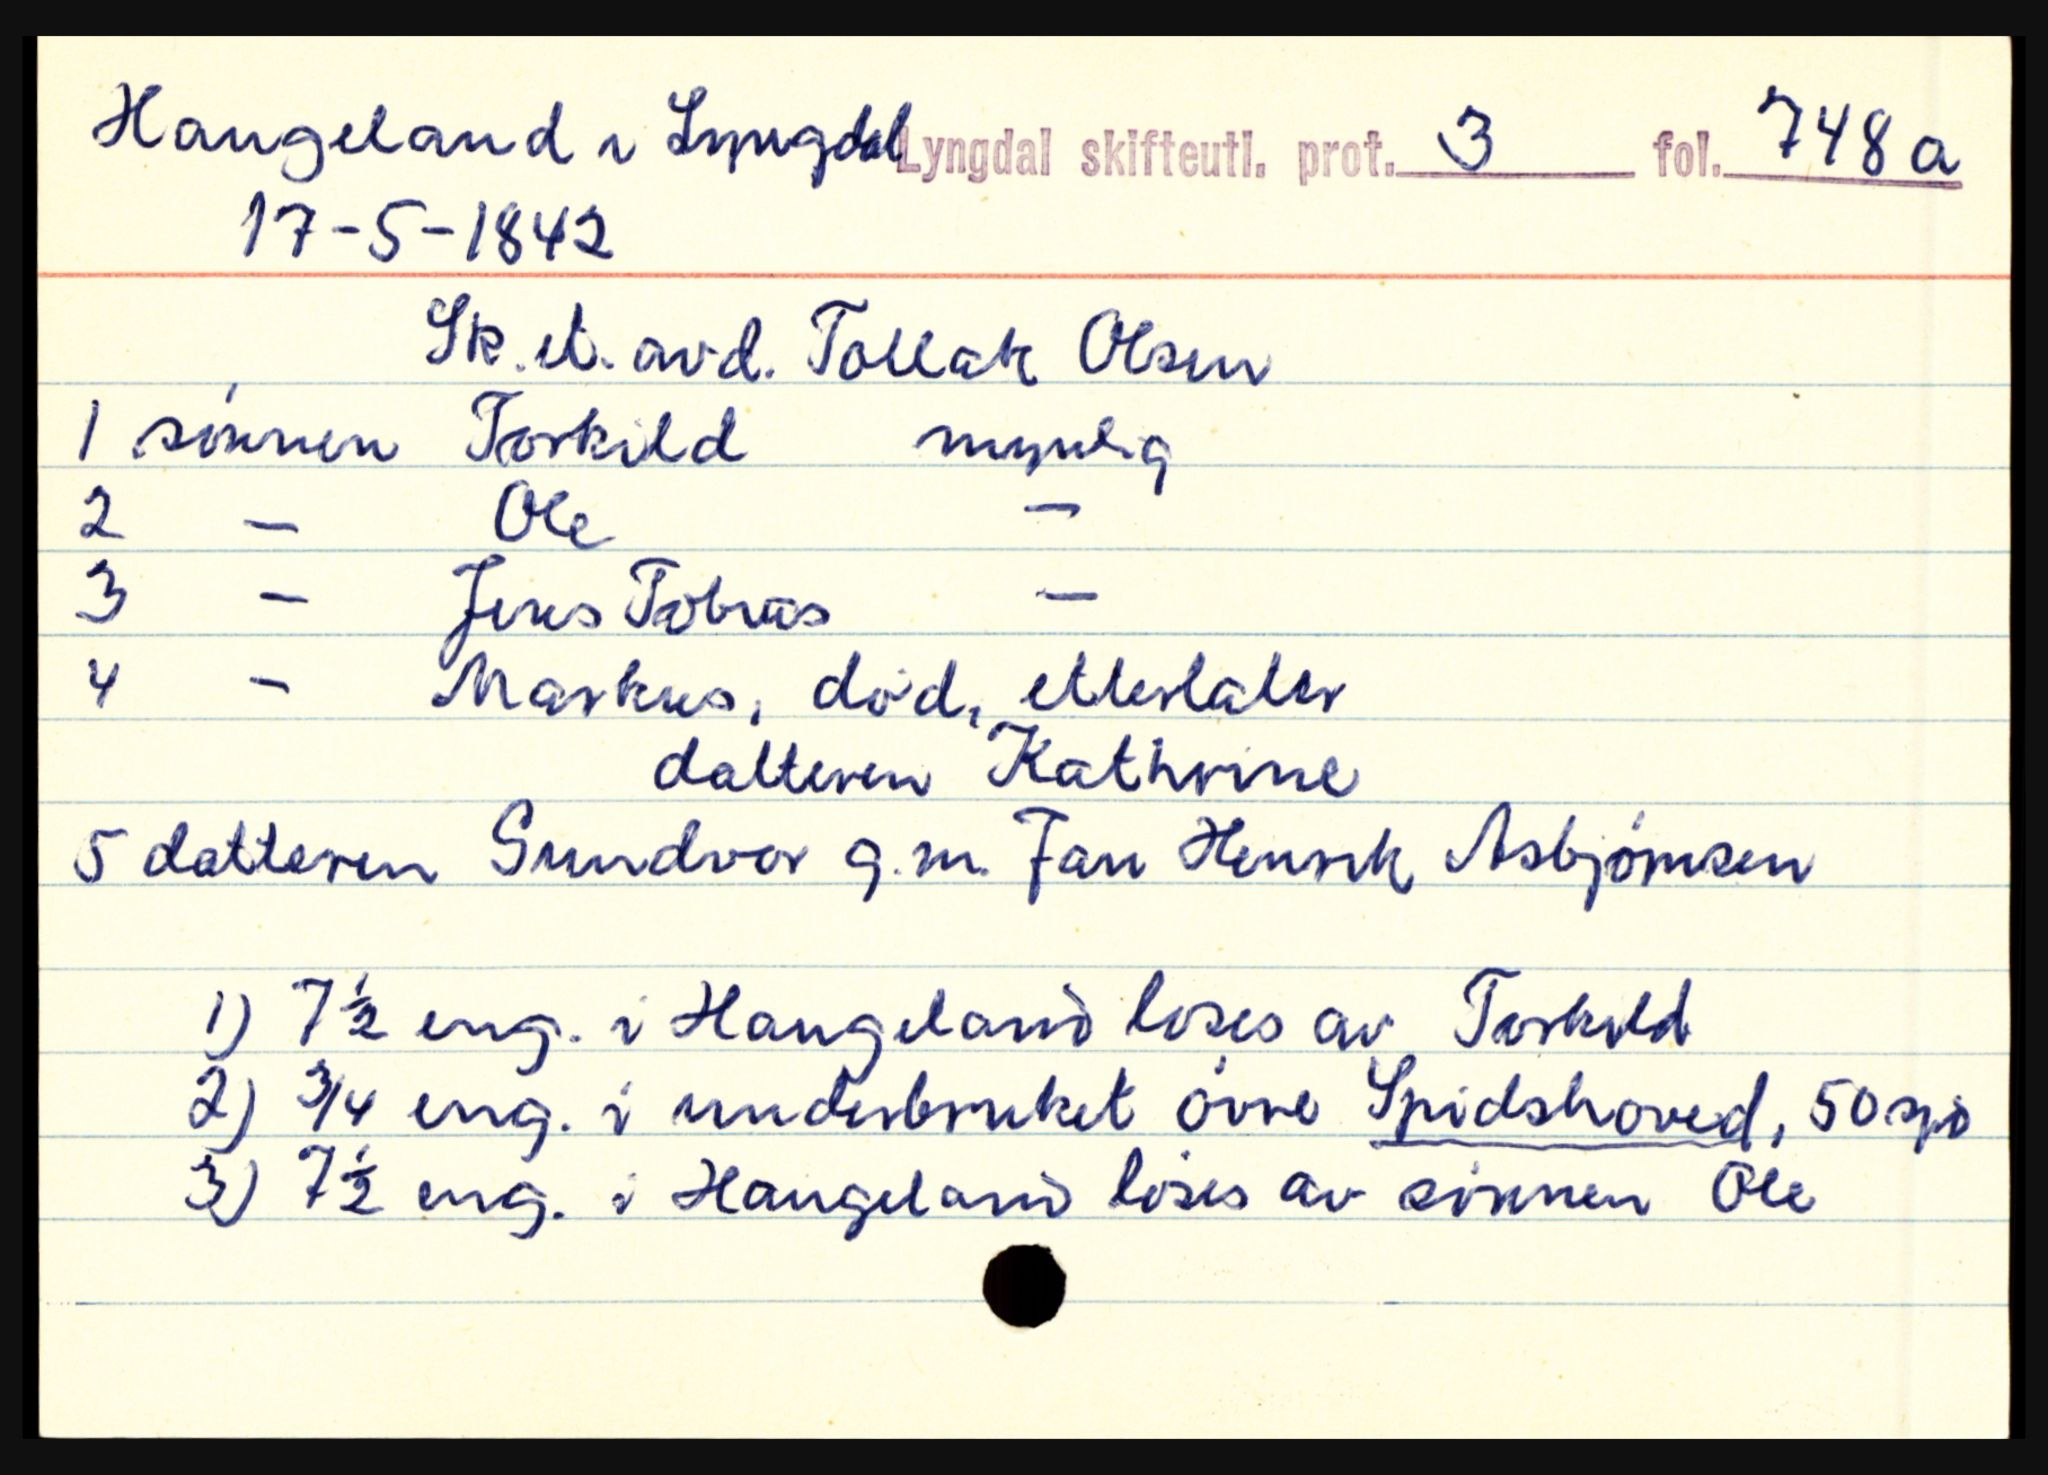 Haugeland i Lyngdal Lyngdal skifteutl. prot. 3 fol. 748a
17-5-1842
Sk. et. avd. Tollak Olsen
1 sønnen Torkild myndig
2 – Ole –
3 – Jens Tobias –
4 – Markus, død, etterlater
datteren Kathrine
5 datteren Gundvor g.m. Jan Henrik Asbjørnsen
1) 7½ eng. i Haugeland løses av Torkild
2) 3/4 eng. i underbruket øvre Spidshoved, 50 spd
3) 7½ eng. i Haugeland løses av sønnen Ole